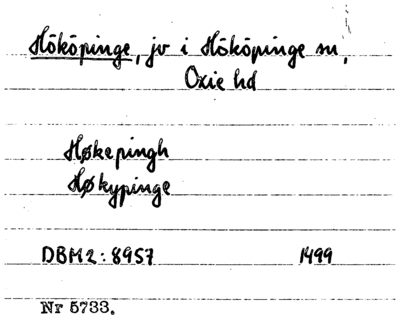 Hököpinge, jv i Hököpinge sn,
Oxie hd
Høkepingh
Høkypinge
DBM2: 8957 1499
Nr 5733.